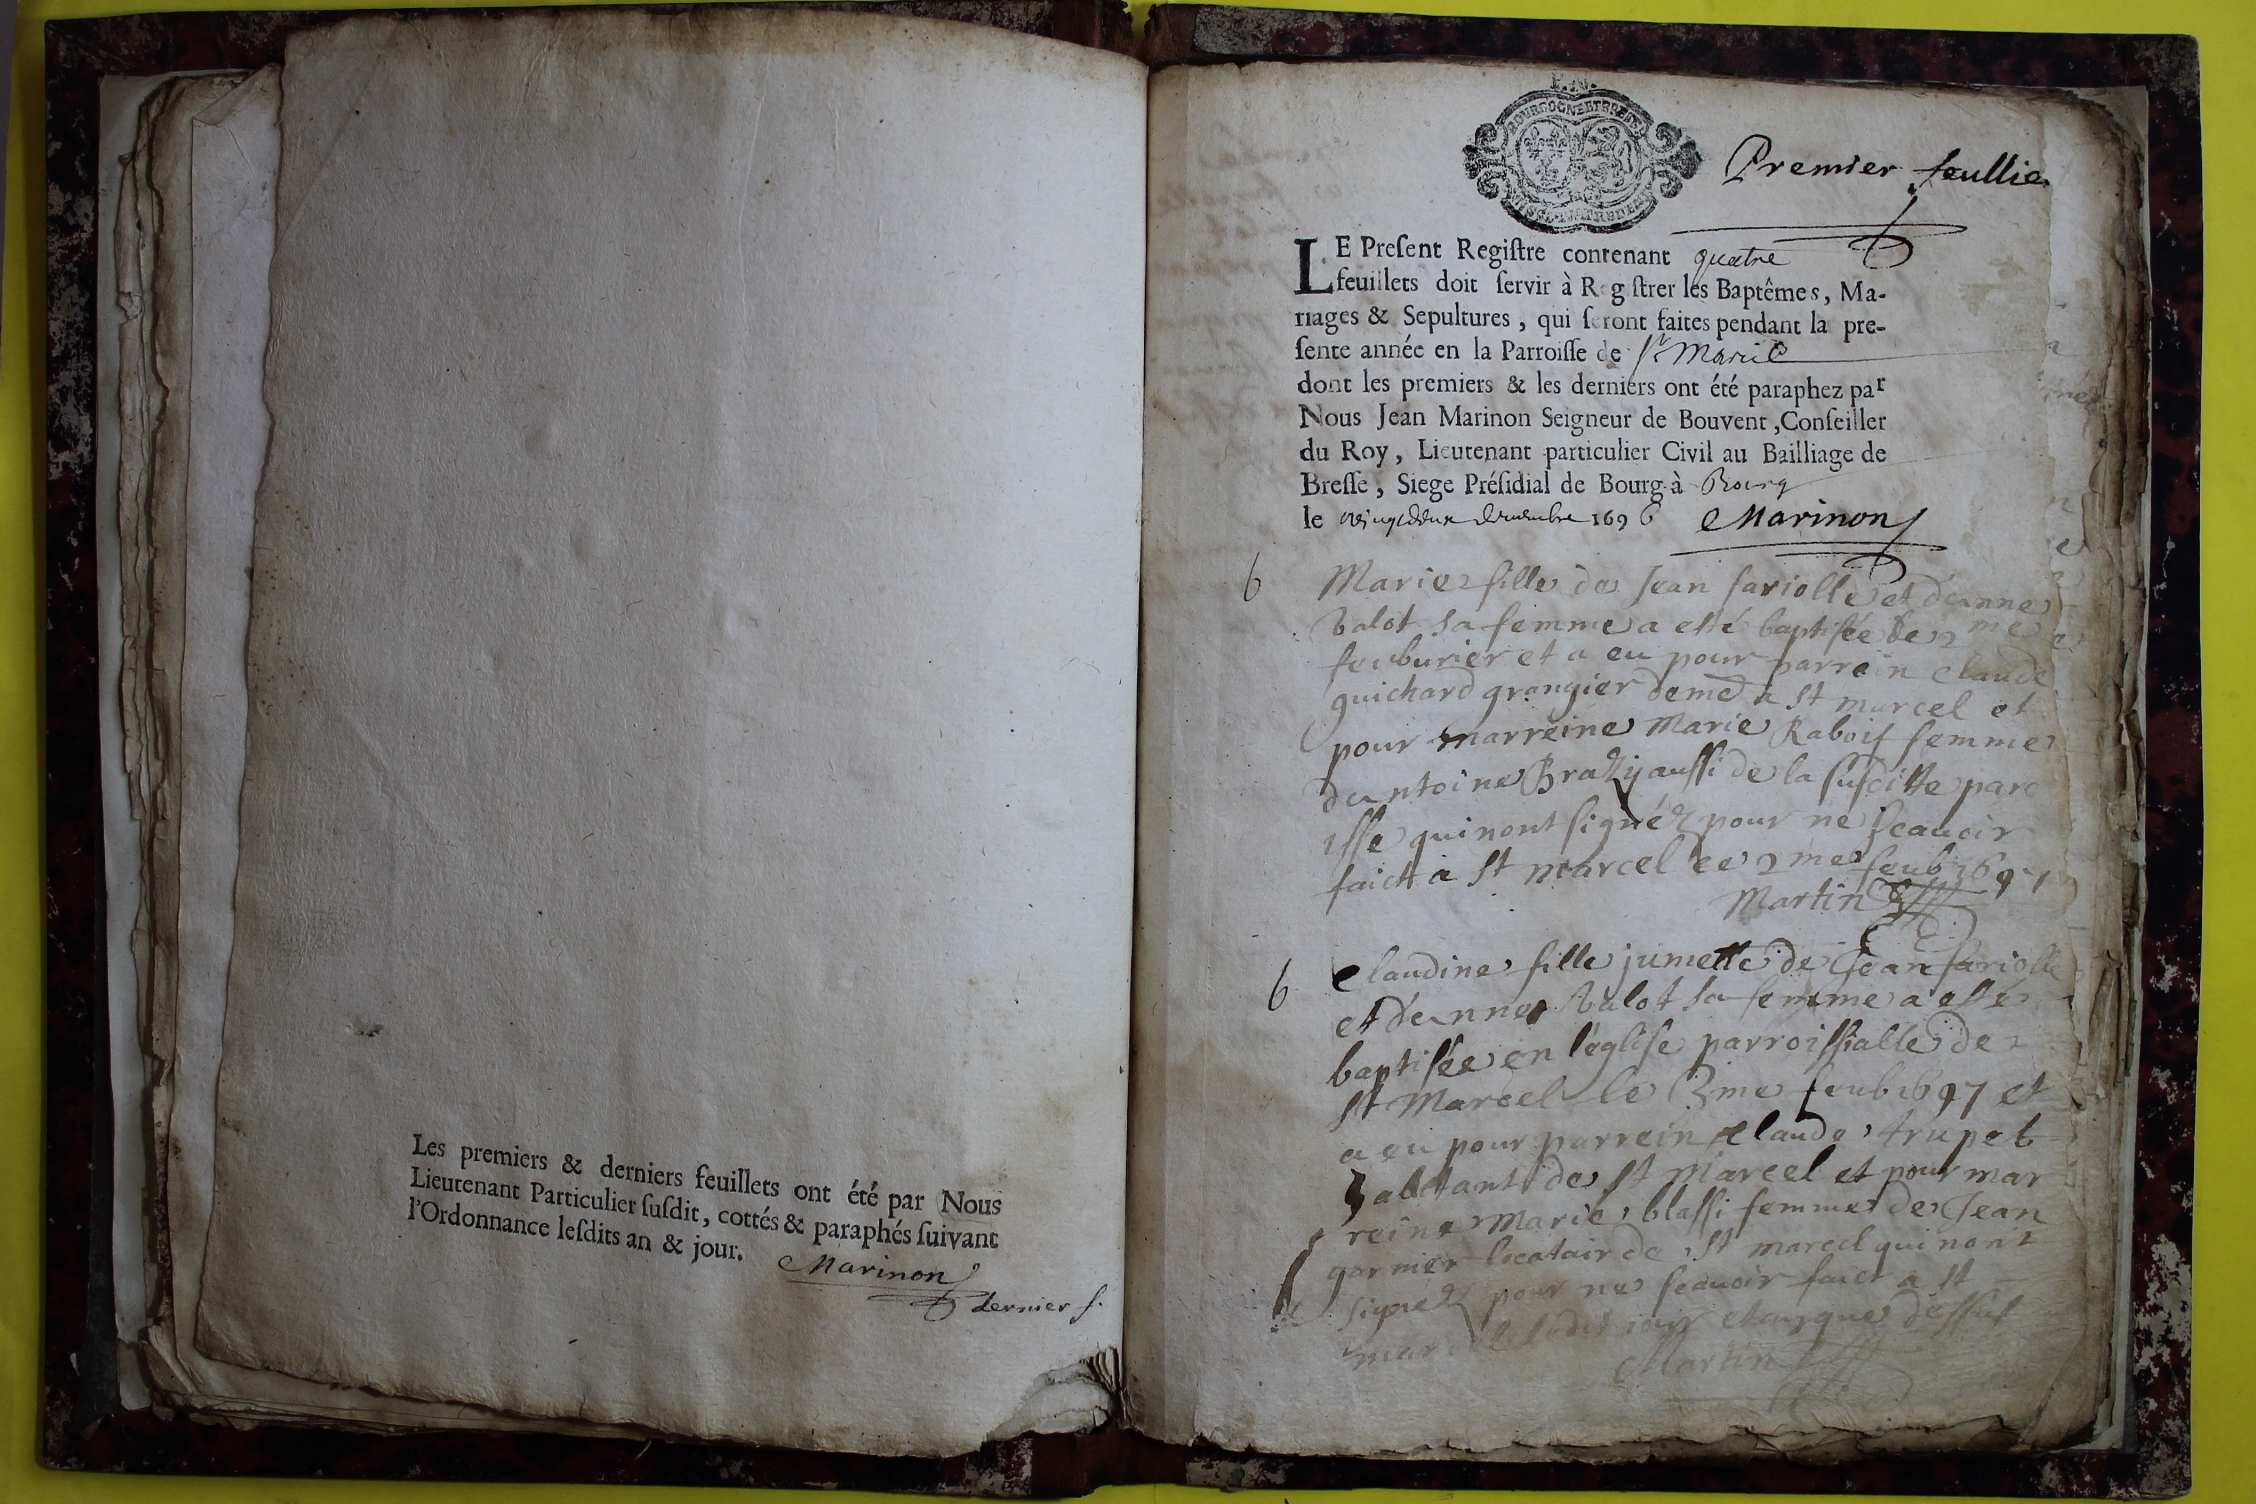 Les premiers & derniers feuillets ont été par Nous
Lieutenant Particulier susdit, cottés & paraphés suivant
l'Ordonnance lesdits an & jour.
Marinon
dernier f.
BOURGOGNE ET BRESSE
Premier feullie
LE Present Registre contenant quatre
feuillets doit servir à Registrer les Baptêmes, Ma-
riages & Sepultures, qui seront faites pendant la pre-
sente année en la Parroisse de
dont les premiers & les derniers ont été paraphez par
Nous Jean Marinon Seigneur de Bouvent, Conseiller
du Roy, Lieutenant particulier Civil au Bailliage de
Bresse, Siege Présidial de Bourg à Bourg
le vingtdeux decembre 1696 Marinon
b Marie fille de Jean fariolle et d'anne
Valot sa femme a esté baptisée le 2me
feuburier et a eu pour parrein claude
guichard grangier deme a st marcel et
pour marreine Marie Raboif femme
dantoine aussi de la susditte paro
isse qui nont signéz pour ne scauoir
faict a st marcel le 2me feub 1697
Martin
b Claudine fille jumelle de Jean fariolle
et d'anne Valot sa femme a esté
baptisée en l'eglise parroissialle de
st Marcel le 3me feub 1697 et
a eu pour parrein claude trupet
habitant de st Marcel et pour mar
reine Marie blassi femme de Jean
garnier locatair de st marcel qui nont
signez pour ne scauoir faict a st
marcel jour et an que dessus
Martin